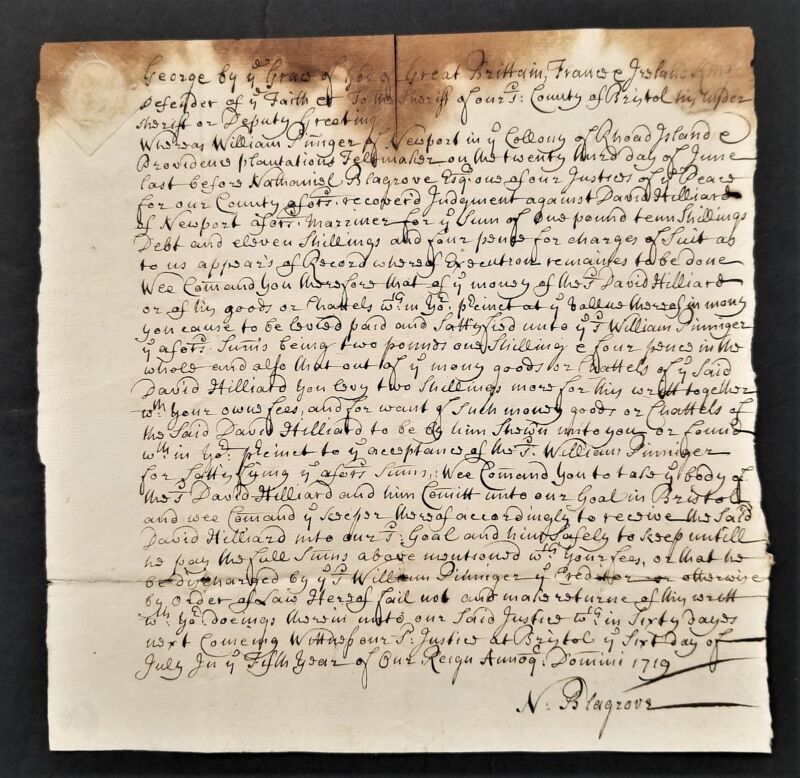 George by yᵉ Grace of God of Great Brittain, France & Ireland King
Defender of yᵉ Faith &c To the Sheriff of our sᵈ: County of Bristol his under
Sheriff or Deputy Greeting
Whereas William Pinnger of Newport in yᵉ Collony of Rhoad Island &
Providence plantations Feltmaker on the twenty third day of June
last before Nathaniel Blagrove Esqʳ: one of our Justices of yᵉ Peace
for our County aforsᵈ: recoverd Judgment against David Hilliard
of Newport aforsᵈ: Marriner for yᵉ Sum of One pound tenn Shillings
Debt and eleven Shillings and four pence for charges of Suit as
to us appears of Record whereof Execution remaines to be done
Wee Comand you therefore that of yᵉ money of the sᵈ David Hilliard
or of his goods or Chattels wᵗʰin yoʳ: precinct at yᵉ vallue thereof in mony
you cause to be levied paid and Sattisfied unto yᵉ sᵈ William Pinniger
yᵉ aforsᵈ: Sums being two pounds one Shilling & four pence in the
whole and also that out of yᵉ mony goods or Chattels of yᵉ Said
David Hilliard you levy two Shillings more for this writt together
wᵗʰ your owne fees, and for want of Such money goods or Chattels of
the Said David Hilliard to be by him Shewn unto you or found
wᵗʰin yoʳ: precinct to yᵉ acceptance of the sᵈ: William Pinniger
for Sattisfying yᵉ aforsᵈ Sums: Wee Comand You to take yᵉ body of
the sᵈ David Hilliard and him Comitt unto our Goal in Bristol
and wee Comand yᵉ keeper thereof accordingly to receive the Said
David Hilliard into our sᵈ: Goal and him Safely to keep untill
he pay the full Sums above mentioned wᵗʰ your fees, or that he
be discharged by yᵉ sᵈ William Pinniger yᵉ Creditor or otherwise
by Order of Law Hereof fail not and make returne of this writt
wᵗʰ yoʳ Doeings therein unto our Said Justice wᵗʰin Sixty dayes
next Comeing Wittness our sᵈ: Justice at Bristol yᵉ Sixt day of
July In yᵉ Fifth Year of Our Reign Annoq: Domini 1719
N: Blagrove